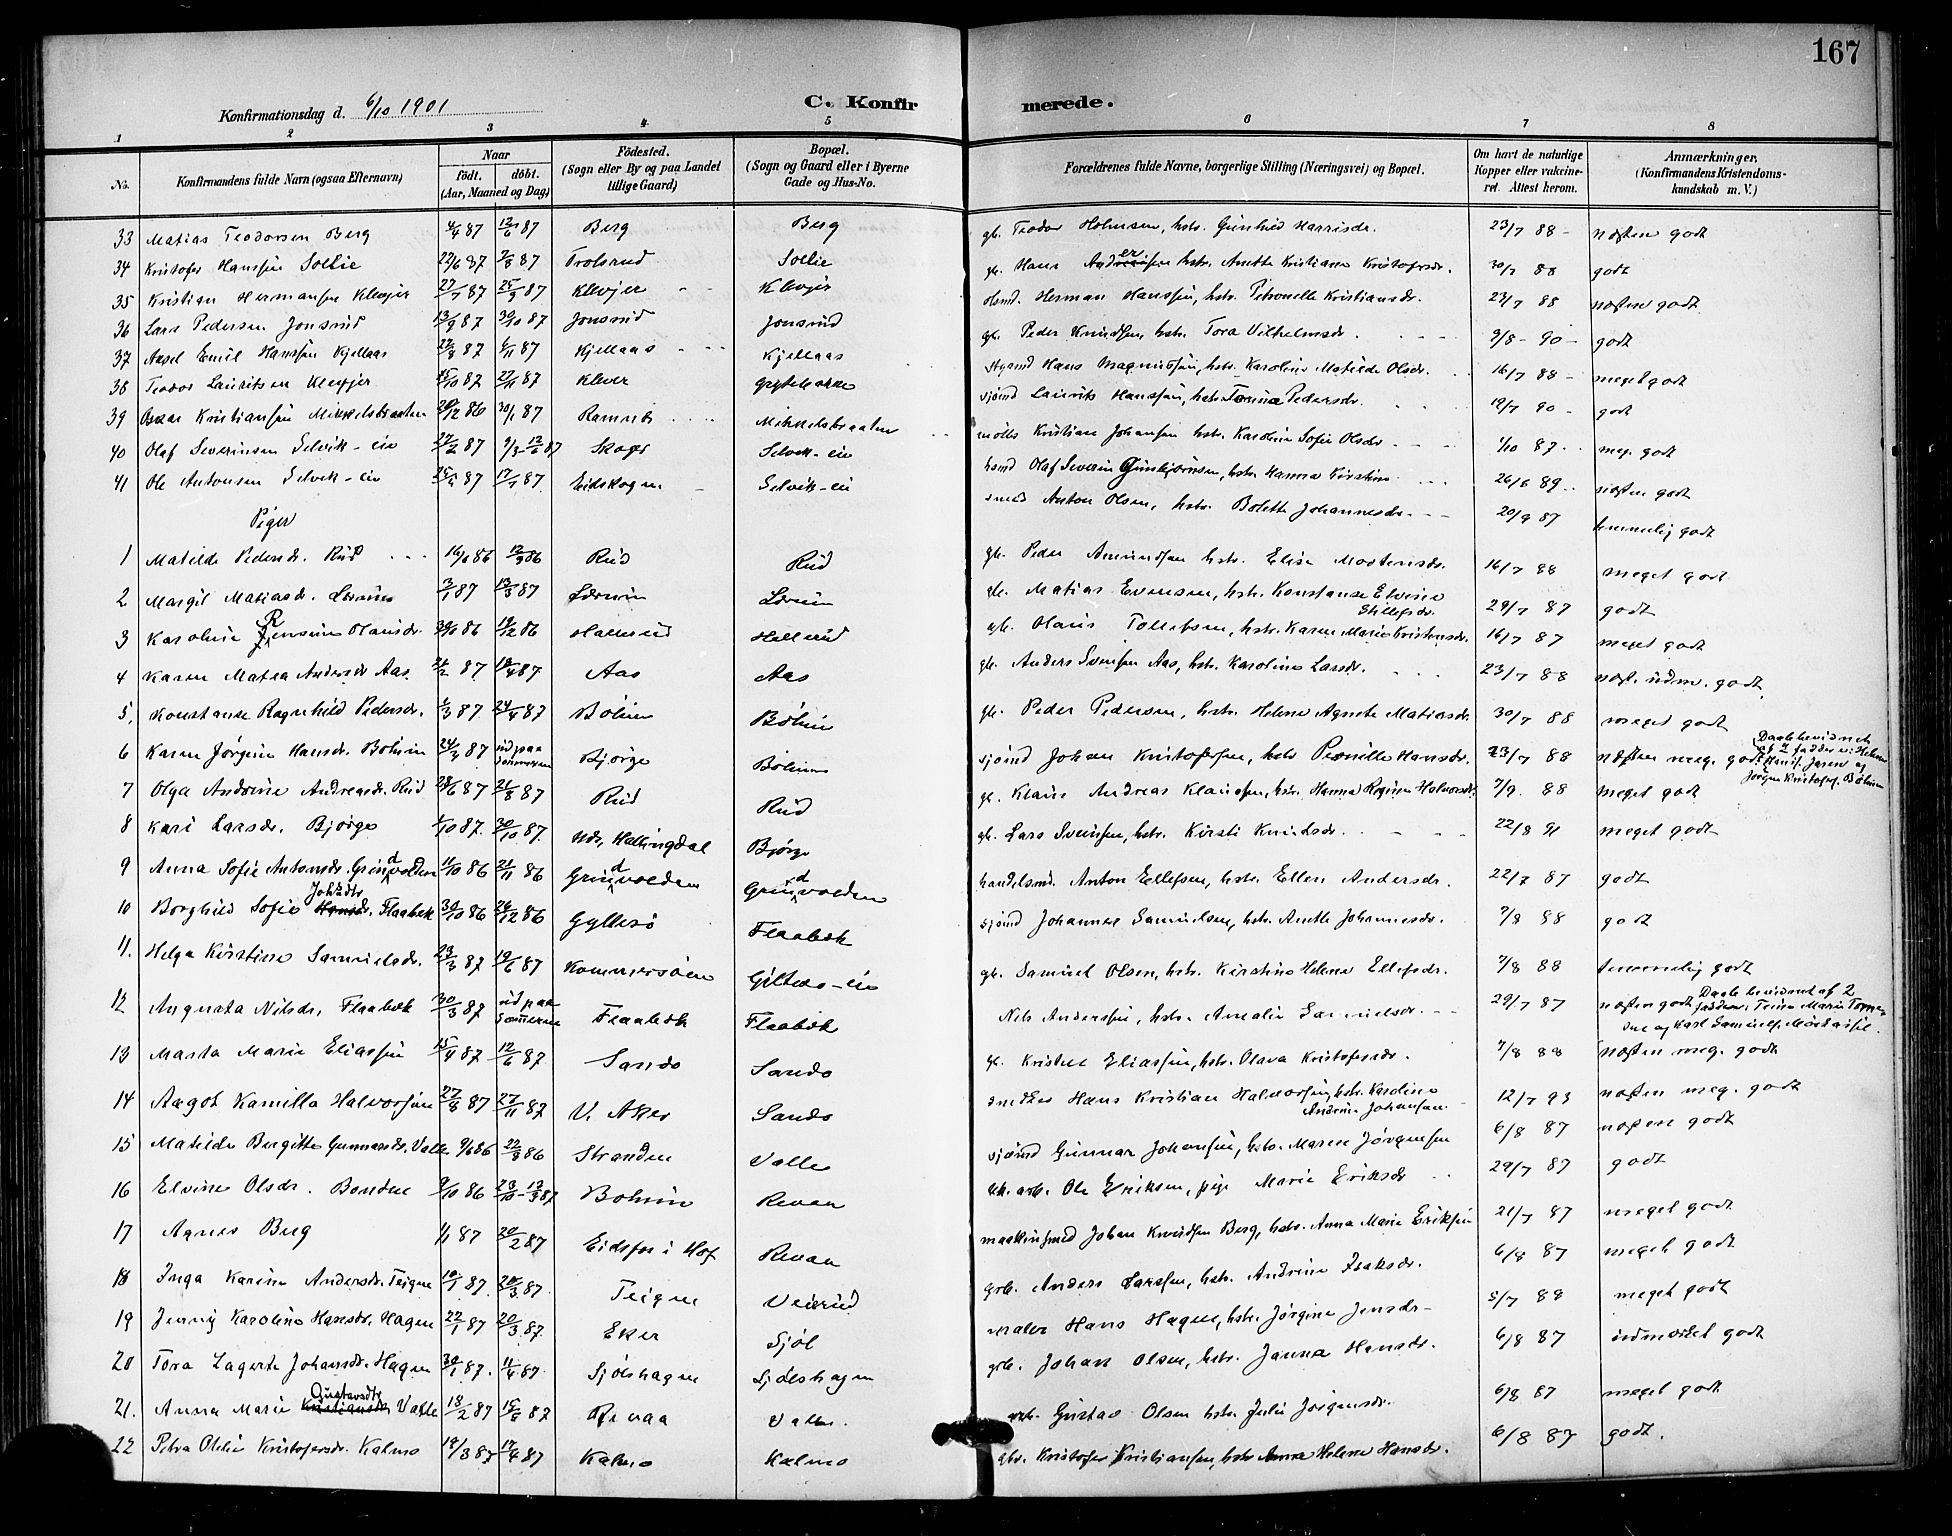 167
Konfirmationsdag d. 6/10 1901
C. Konfirmerede.
1 2 3 4 5 6 7 8
No. Konfirmandens fulde Navn (ogsaa Efternavn) Naar født. døbt. (Aar, Maaned og Dag) Födested. (Sogn eller By og paa Landet tillige Gaard) Bopæl. (Sogn og Gaard eller i Byerne Gade og Hus-No. Forældrenes fulde Navne, borgerlige Stilling (Næringsvei) og Bopæl. Om havt de naturlige Kopper eller vakcineret. Attest herom. Anmærkninger. (Konfirmandens Kristendomskundskab m. V.)
33 Matias Teodorsen Berg 4/4 87 12/6 87 Berg Berg gb. Teodor Holmsen, hstr. Gunhild Harrisdr. 23/7 88 - næsten godt
34 Kristofer Hanssen Sollie 22/6 87 7/8 87 Trolsrud Sollie gb. Hans hstr. Anette Kristiane Kristofersdr. 30/7 88 godt
35 Kristian Hermansen Klevjer 27/7 87 25/9 87 Klevjer Klevjer Herman Hanssen, hstr. Petronelle Kristiansdr. 23/7 88 næsten godt
36 Lars Pedersen Jonsrud 13/9 87 30/10 87 Jonsrud Jonsrud gb. Peder Knudsen, hstr. Tora Vilhelmsdr. 9/8 - 90 - godt
37 Axel Emil Hanssen Kjellaas 22/8 87 6/11 87 Kjellaas Kjellaas Hans Magnussen, hstr. Karoline Matilde Olsdr. 16/7 88 - meget godt
38 Teodor Lauritsen Klevjer 15/10 87 27/11 87 Klever sjømd Laurits Hanssen, hstr. Pedersdr. 19/7 90 - godt
39 Oscar Kristiansen Mikkelsbraaten 20/12 86 30/1 87 Ramnes Mikkelsbraaten Kristian Johansen hstr. Karoline Sofie Olsdr 1/10 87 meg. godt
40 Olaf Severinsen Selvik - eie 27/2 87 9/3 - 12/6 87 Skoger Selvik - eie Olaf Severin Gunbjörnsen, hstr. Hanna Kirstine 26/6 89 næsten godt
41 Ole Antonsen Selvik - eie 25/5 87 17/7 87 Eidskogen Selvik - ei smed Anton Olsen, hstr. Bolette Johannesdr. 20/9 87 temmelig godt
Piger
1 Matilde Pedersdr. Rud 16/8 86 12/9 86 Rud Rud gb. Peder Amundsen hstr. Elise Mortensdr. 16/7 88 meget godt
2 Margit Matiasdr. 3/1 87 13/3 87 gb. Matias Evensen, hstr. Konstanse Elvine Ellefsdr. 29/7 87 godt
3 Karoline Olausdr. 30/10 86 19/12 86 Hallerud Hallerud gb. Olaus Tollefsen, hstr. Karen Marie Kristensdr. 16/7 87 meget godt
4 Karen Matea Andersdr Aas. 21/2 87 10/4 87 Aas Aas gb. Anders Svensen Aas, hstr. Karoline Larsdr. 23/7 88 næst. udm. godt
5. Konstanse Ragnhild Pedersdr. 6/3 87 24/4 87 Böhm Böhm gb. Peder Pedersen, hstr. Helene Agnete Matiasdr. 30/7 88 meget godt
6 Karen Jörgine Hansdr. Böhm 24/3 87 ud paa sommeren Bjørge Böhm sjømd Johan Kristoffersen, hstr Pernille Hansdr. 23/7 88 næsten meg. godt Daab bevidnet af 2 faddere: Helene Hansd. Jaren og Jörgen Kristofers. Böhm
7 Olga Andrine Andreasdr. Rud 28/6 87 21/8 87 Rud Rud gb. Klaus Andreas Klaussen, hstr. Hanna Regine Halvorsdr. 7/9. 88 meget godt
8 Kari Larsdr. Bjørge 6/10 87. 30/10 87. Hallingdal Bjørge gb. Lars Svensen, hstr. Kirsti Knudsdr. 22/8 91 meget godt
9 Anna Sofie Antonsdr. Grindvolden 11/10 86 21/11 86 Grindvolden Grindvolden handelsmd. Anton Ellefsen, hstr. Ellen Andersdr. 22/7 87 godt
10 Borghild Sofie Johsdtr Hansdr. Flaabæk 30/10 86 26/12 86 Gyllesö Flaabæk sjømd Johannes Samuelsen, hstr. Anette Johannesdr. 7/8 88 godt
11. Helga Kirstine Samuelsdr. 23/3 87 19/6 87 Kommersöen gb. Samuel Olsen, hstr. Kirstine Helene Ellefsdr. 7/8 88 temmelig godt
12 Augusta Nilsdr. Flaabæk 30/3 87 ud paa sommeren Flaabæk Flaabæk Nils Anderssen, hstr. Amalie Samuelsdr. 29/7 87 næsten godt Daab bevidnet af 2 faddere: Trine Marie og Karl Samuels.
13 Marta Marie Eliassen 15/4 87 12/6 87 Sando Sando gb. Kristian Eliassen, hstr. Olava Kristofersdr. 7/8 88 næsten meg. godt
14 Aagot Kamilla Halvorsen 27/8 87 27/11 87 V. Aker Sando snedker Hans Kristian Halvorsen, hstr. Karoline Andrine Johansen. 12/7 93 næsten meg. godt
15 Matilde Bergitte Gunnarsdr. Valle 9/6 86 22/8 86 Stranden Valle sjømd Gunnar Johansen, hstr. Maren Jørgensen 6/8 87 næsten godt
16 Elvine Olsdr. Bonden 9/10 86 23/10 - 13/3 87 Bohmen Revaa arb. Ole Eriksen, pige Marie Eriksdr 29/7 87 godt
17 Agnes Berg 1/1 87 20/2 87 Eidsfos i Hof Revaa maskinsmed Johan Knudsen Berg, hstr. Anna Marie Eriksen 21/7 87 meget godt
18 Inga Karine Andersdr. Teigen 10/1 87. 20/3 87. Teigen Veierud arb. Anders Larssen, hstr. Andrine Isaksdr. 6/8 87 meget godt
19 Jenny Karoline Hansdr. Hagen 22/1 87 20/3 87. Eker Sjøl maler Hans Hagen, hstr. Jørgine Jensdr - 5/7 88 meget godt
20 Tora Lagerte Johansdr. Hagen 30/1 87. 11/4 87. Sjölshagen Sjölshagen arb. Johan Olsen, hstr. Janna Hansdr. 6/8 87 udmærket godt
21. Anna Marie Gustavsdtr Kristiansdr Valle 18/2 87 15/5 87 Revaa Valle. arb. Gustav Olsen hstr. Julie Jörgensdr. 6/8 87 meget godt
22 Petra Otilie Kristofersdr. Kalmo 19/3 87 17/4 87 Kalmo Kalmo Kristofer Kristiansen, hstr. Anna Helene Hansdr. 6/8 87 godt.